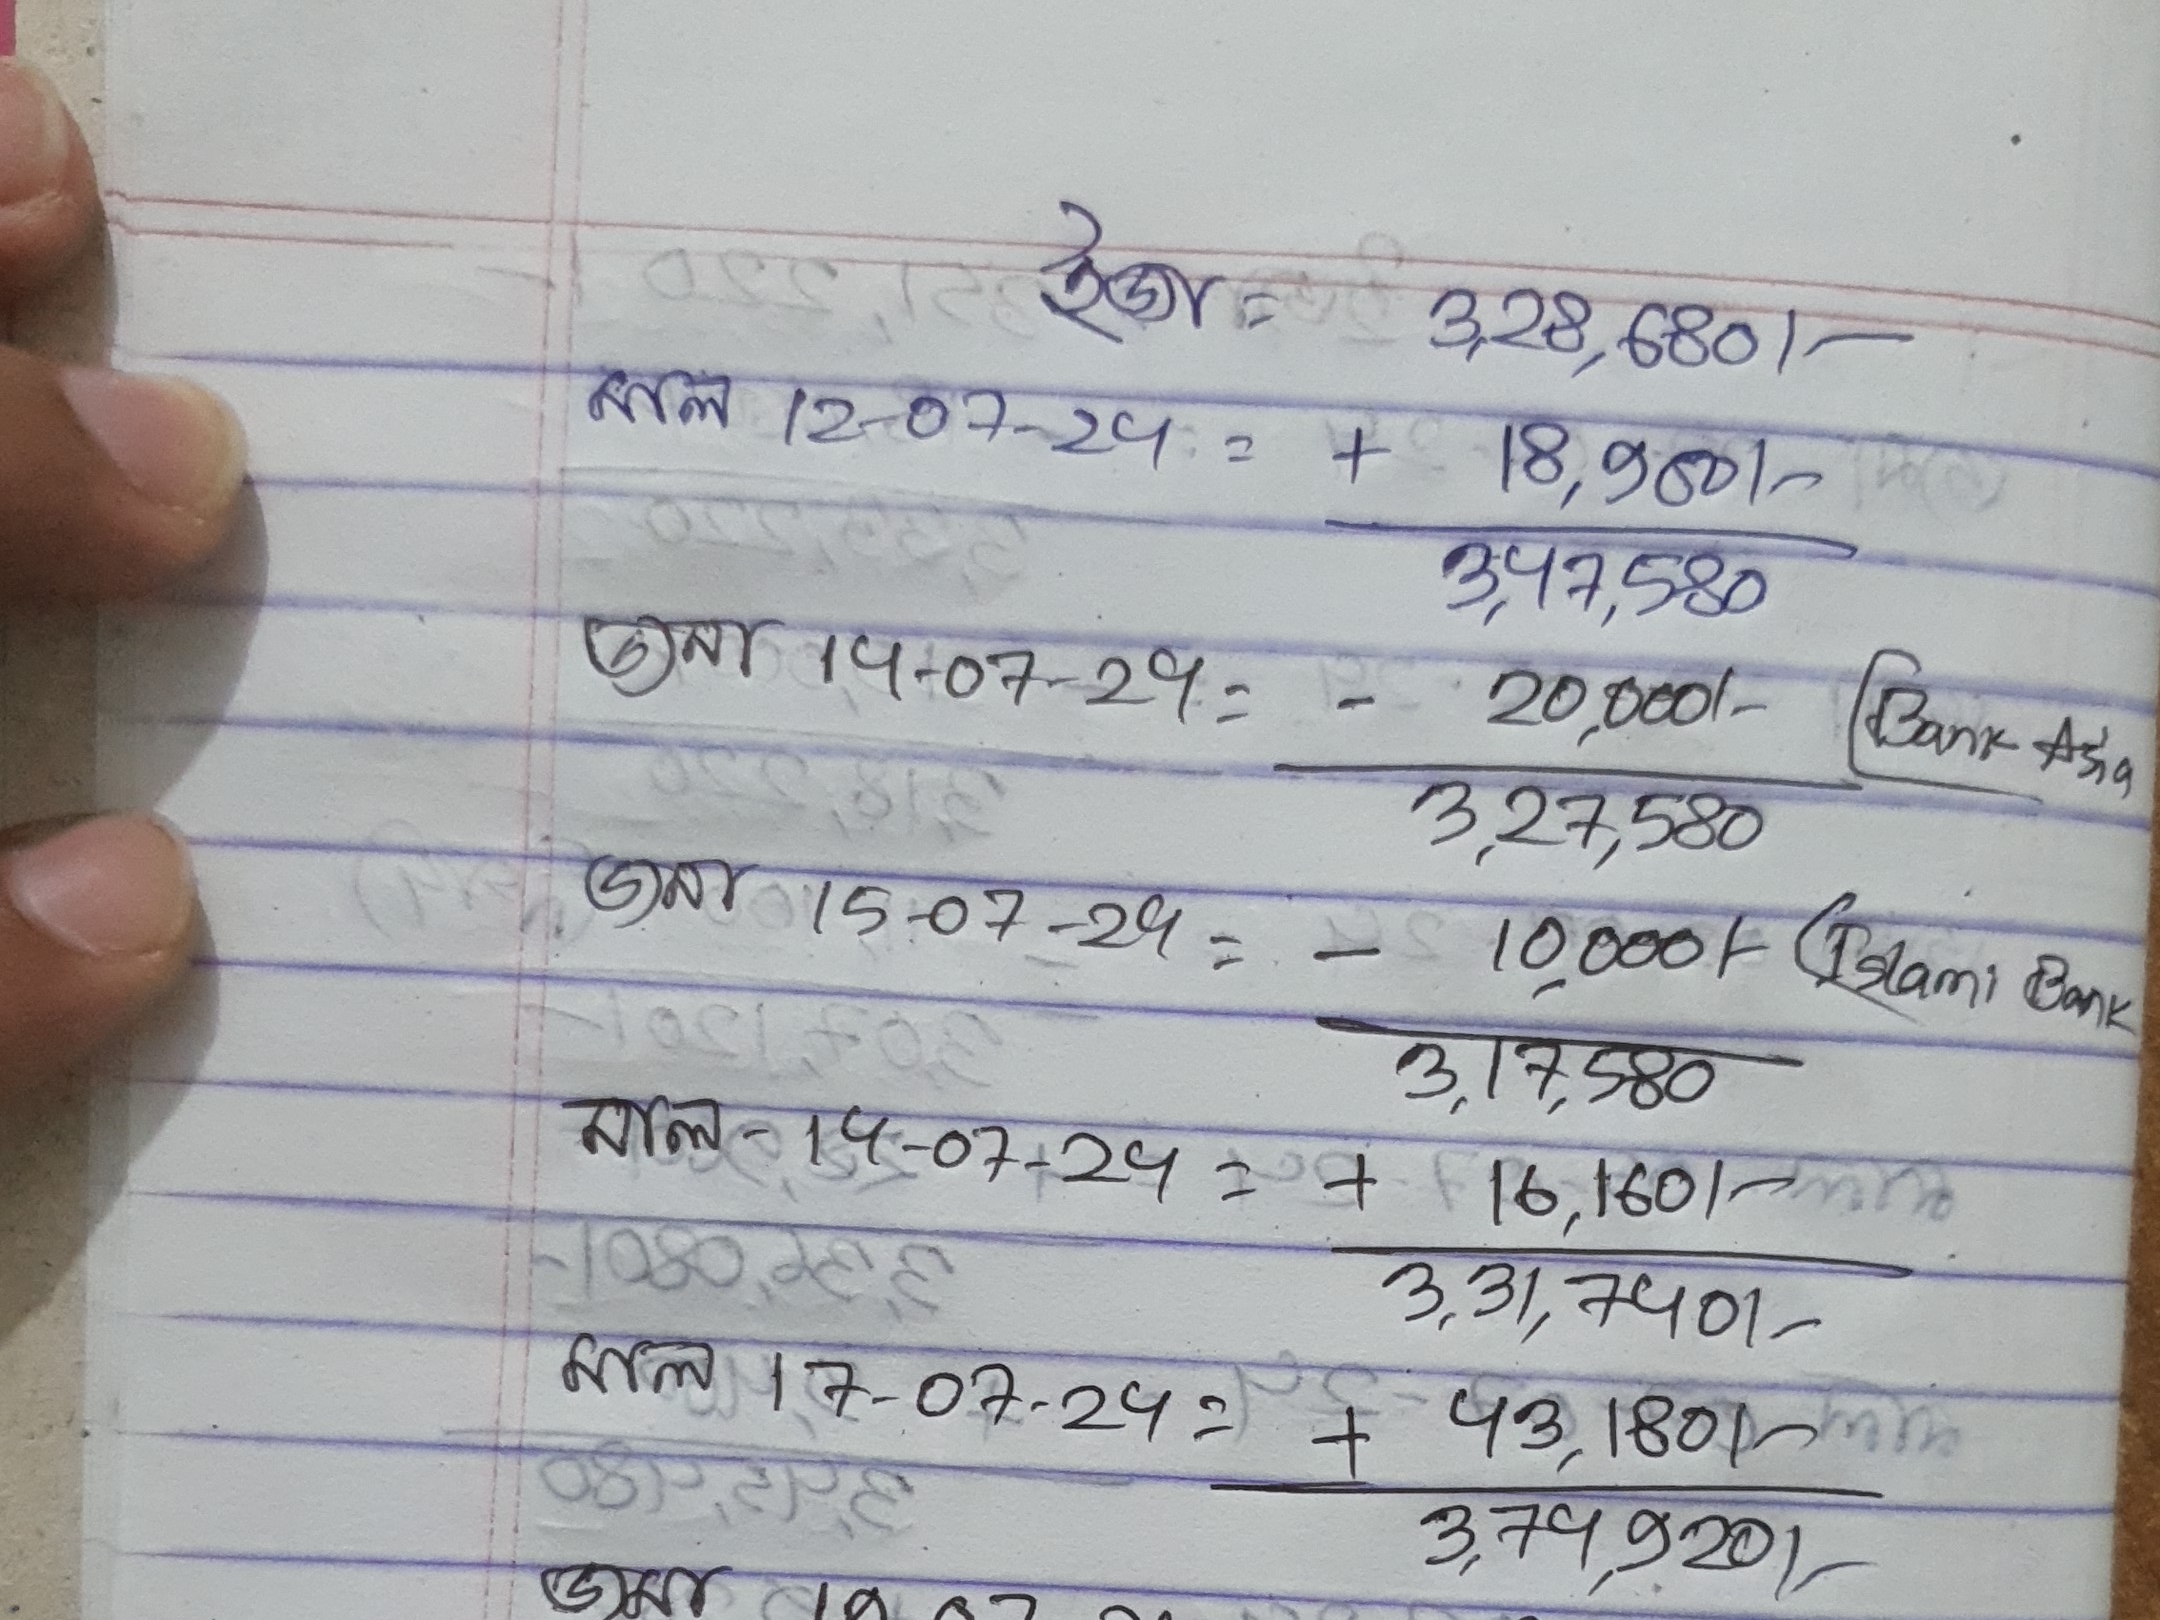 ইজা = 3,28,680/-
মাল 12-07-24 = + 18,900/-
3,47,580
জমা 14-07-24 = - 20,000/- (Bank Asia
3,27,580
জমা 15-07-24 = - 10,000/- (Islami Bank
3,17,580
মাল - 14-07-24 = + 16,160/-
3,31,740/-
মাল 17-07-24 = + 43,180/-
3,74,920/-
জমা